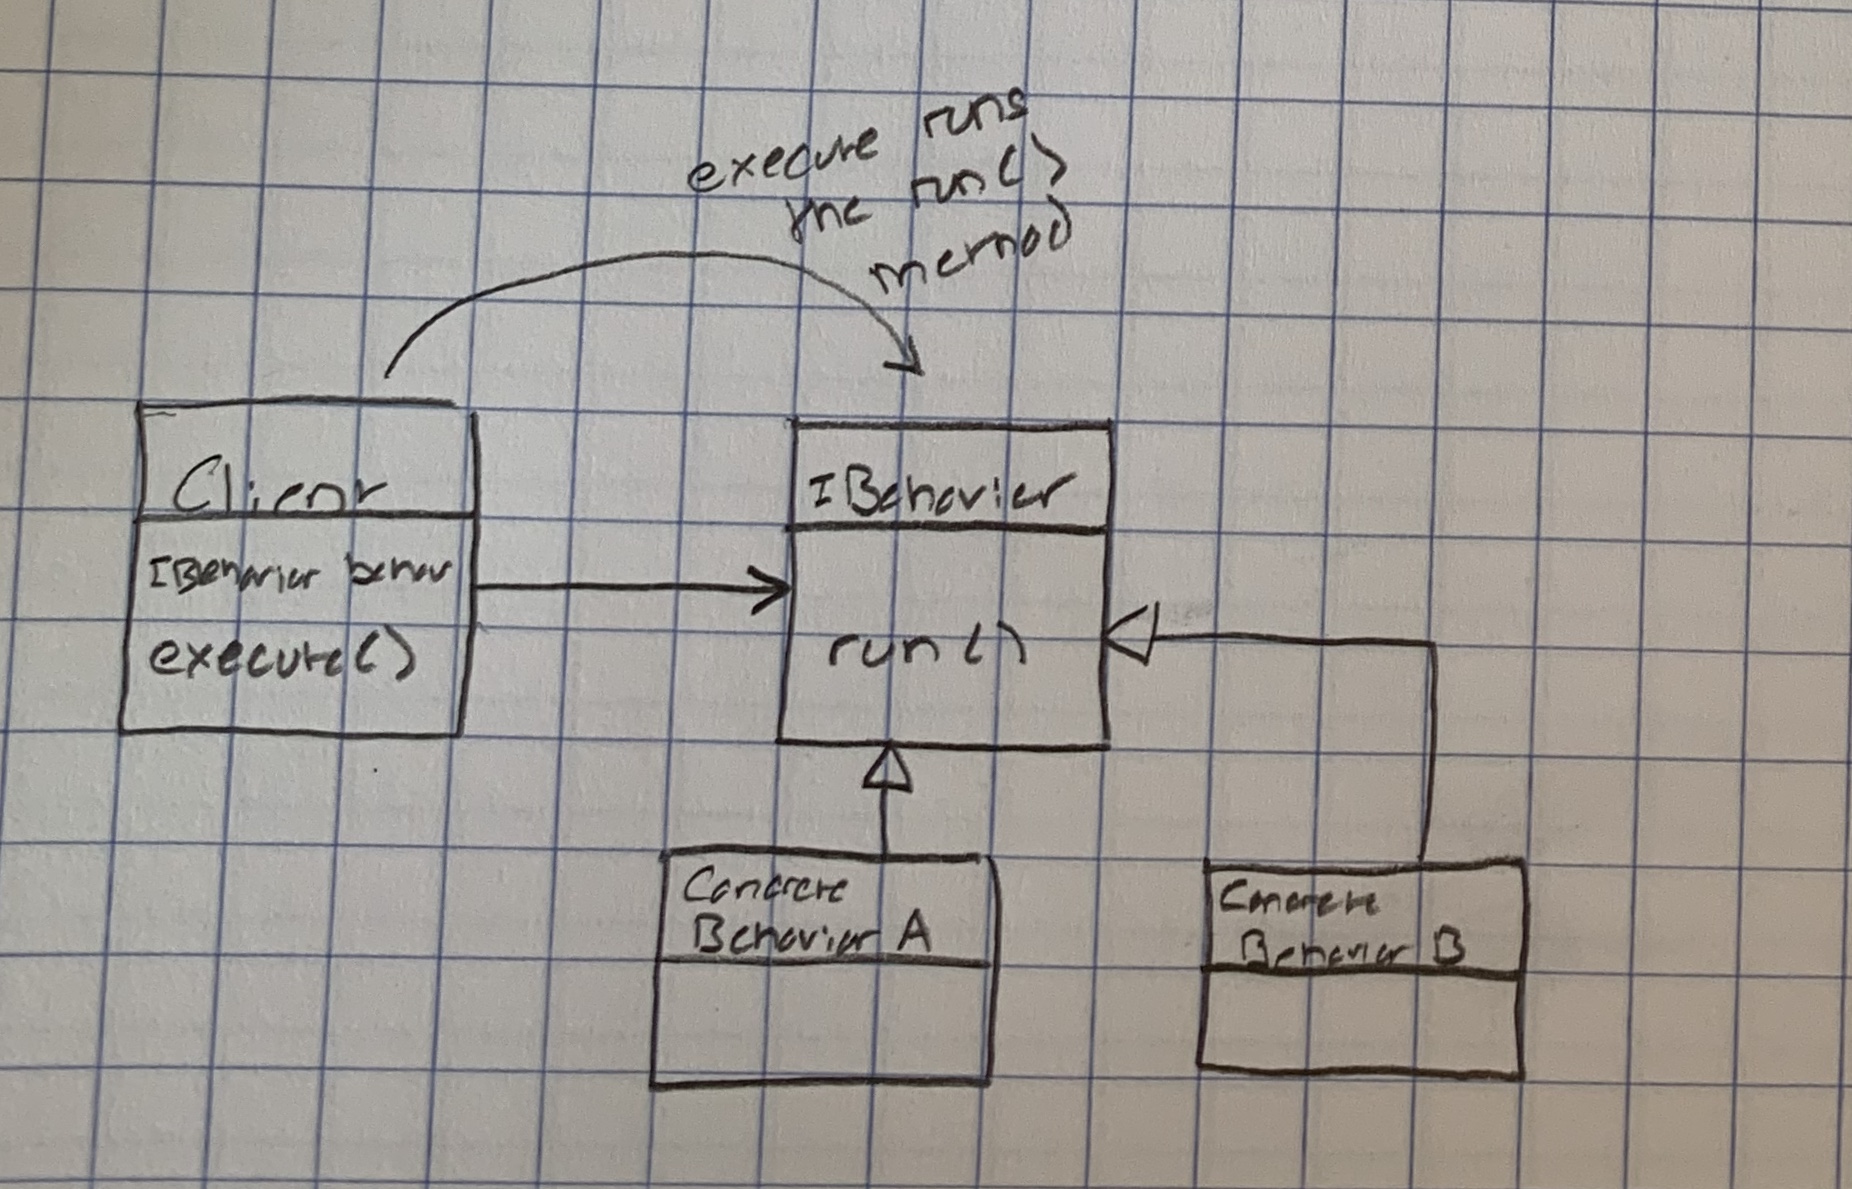 execute runs
the run()
method
Client
IBehavior behav
execute()
IBehavior
run()
Concrete
Behavior A
Concrete
Behavior B